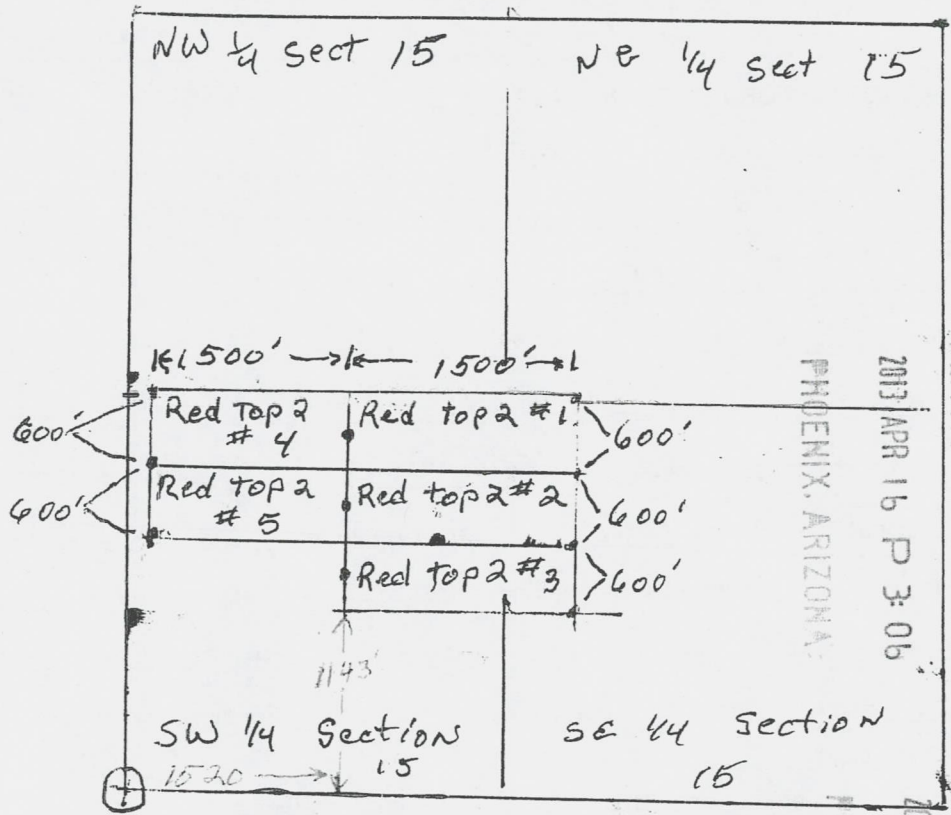 NW 1/4 sect 15
NE 1/4 sect 15
1500'
1500'
600'
Red top 2
# 4
Red top 2 #1
600'
600'
Red top 2
# 5
Red top 2 #2
600'
Red top 2 #3
600'
1143'
SW 1/4 Section
15
SE 1/4 Section
15
1520
2013 APR 16 P 3:06
PHOENIX, ARIZONA